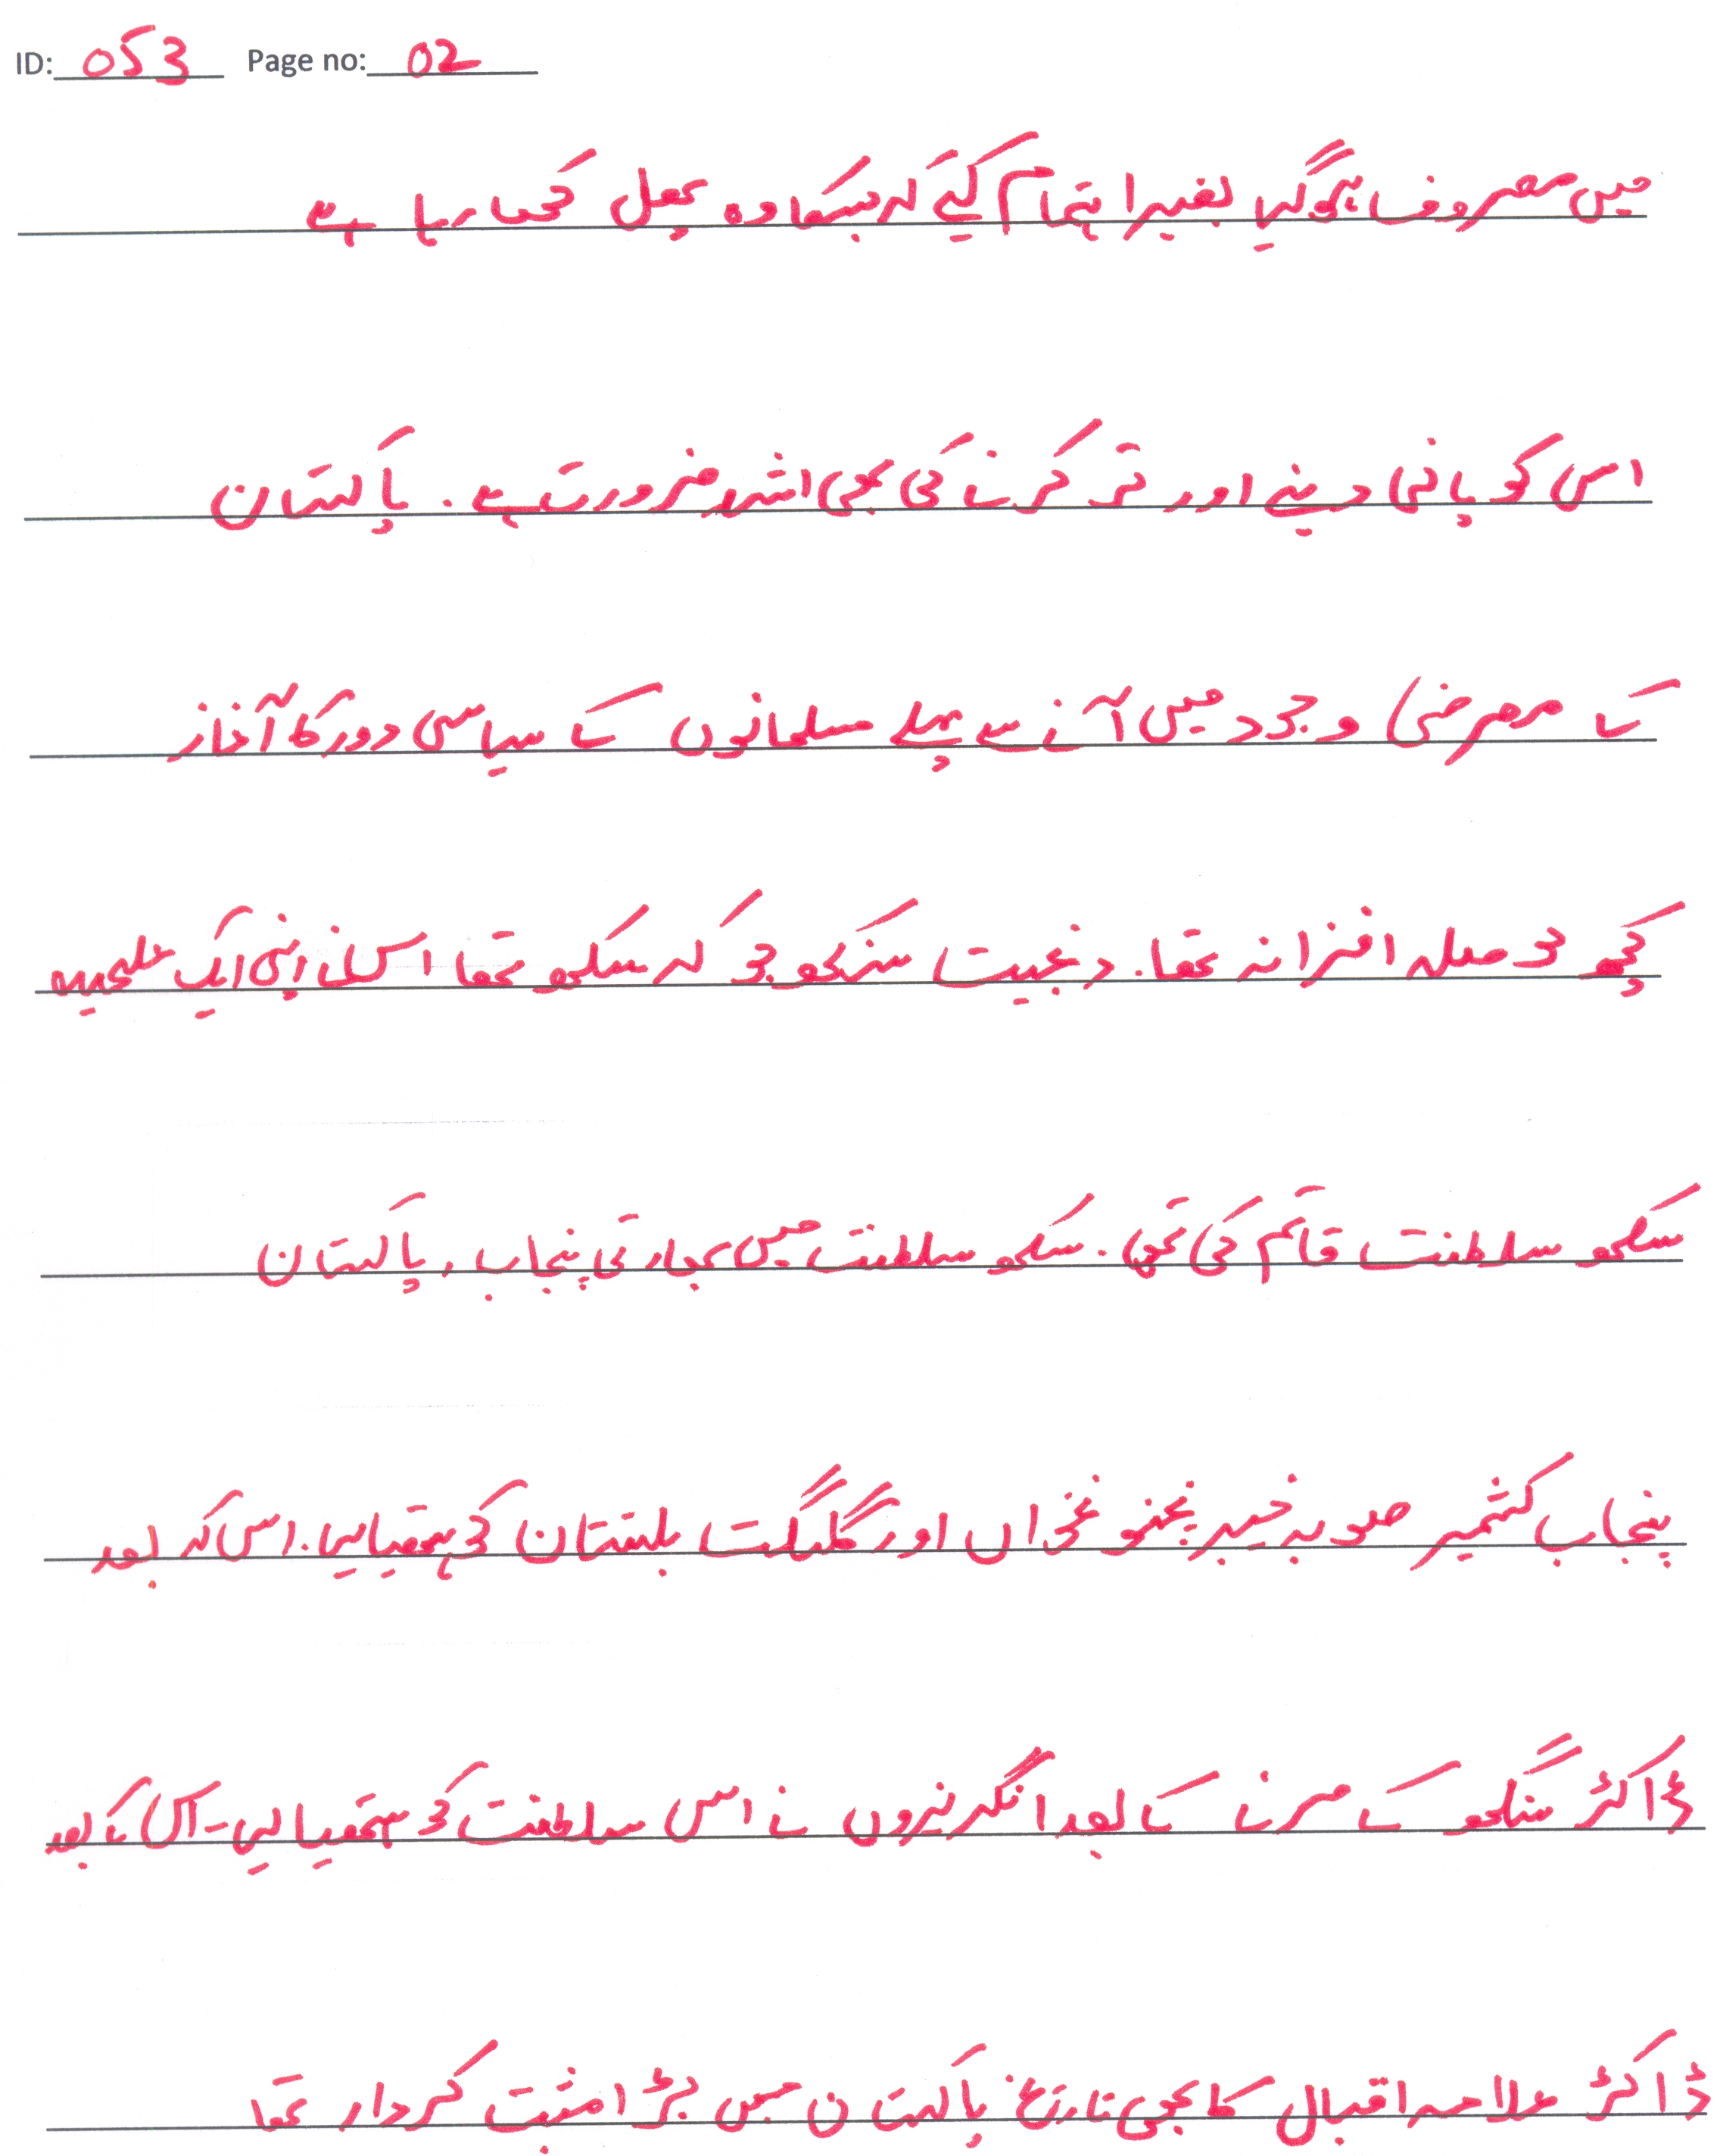 ID: 053 Page no: 02
میں مصروف ہوگیا بغیر اہتمام کیے کہ جسکا وہ پھل کھا رہا ہے
اس کو پانی دینے اور تر کرنے کی بھی اشد ضرورت ہے. پاکستان
کے معرض وجود میں آنے سے پہلے مسلمانوں کے سیاسی دور کا آغاز
کچھ حوصلہ افزا نہ تھا. رنجیت سنگھ جو کہ سکھ تھا اس نے اپنی ایک علیحدہ
سکھ سلطنت قائم کی تھی. سکھ سلطنت میں بھارتی پنجاب, پاکستان
پنجاب کشمیر صوبہ خیبر پختونخواں اور گلگت بلتستان کو ہتھیا لیا. اس کہ بعد
ڈاکٹر سنگھ کے مرنے کے بعد انگریزوں نے اس سلطنت کو ہتھیا لیا۔ اس کے بعد
ڈاکٹر علامہ اقبال کا بھی تاریخ پاکستان میں بڑا مثبت کردار تھا